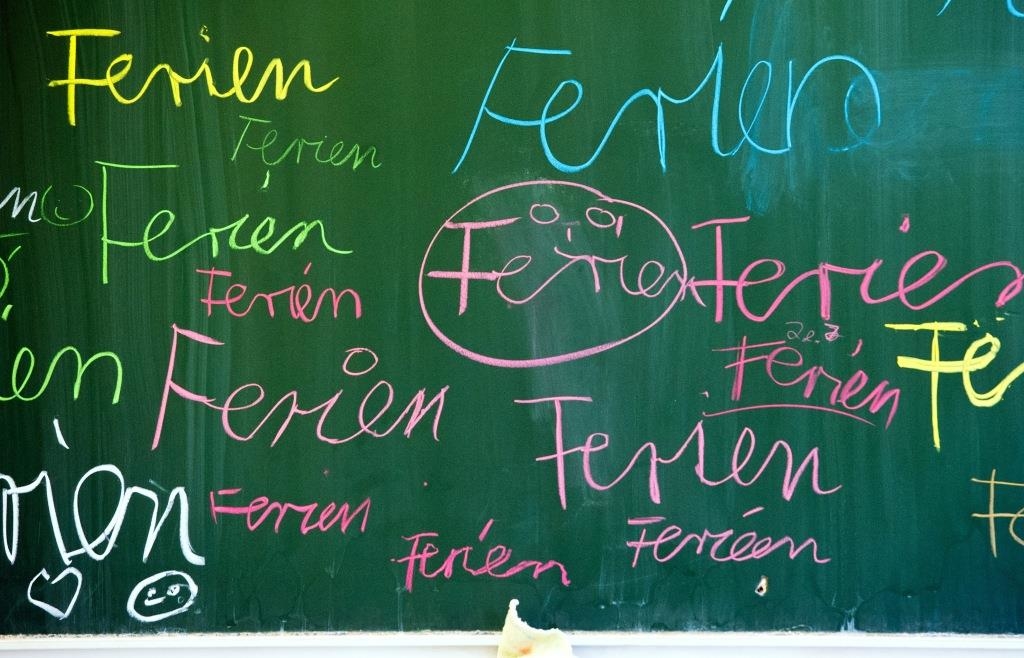 Ferien
Ferien
Ferien
Ferien
Ferien
Ferien
Ferien
Ferien
en
Ferien
Ferien
Fe
rien
Ferien
Ferien
Ferien
Ferien